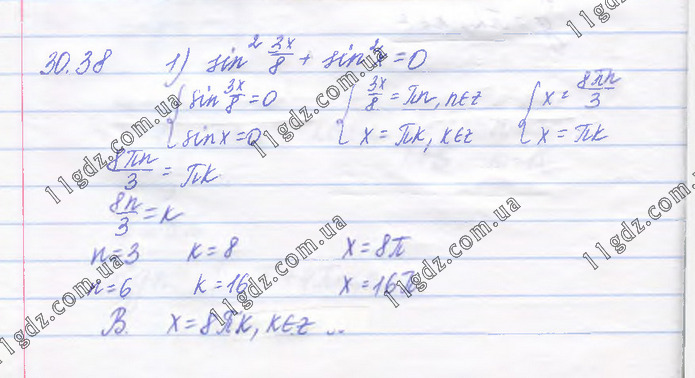 30.38 1) sin² 3x/8 + sin² x = 0
{ sin 3x/8 = 0 { 3x/8 = πn, n∈z { x = 8πn/3
{ sin x = 0 { x = πk, k∈z { x = πk
8πn/3 = πk
8n/3 = k
n=3 k=8 x=8π
n=6 k=16 x=16π
В. x=8πk, k∈z ..
11gdz.com.ua
11gdz.com.ua
11gdz.com.ua
11gdz.com.ua
11gdz.com.ua
11gdz.com.ua
11gdz.com.ua
11gdz.com.ua